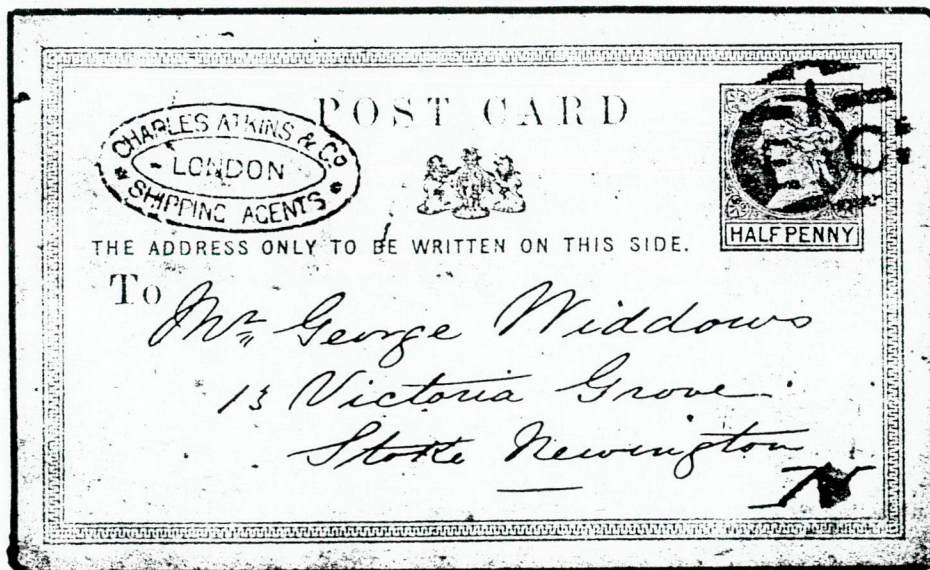 POST CARD
CHARLES ATKINS & Co
LONDON
SHIPPING AGENTS
HALFPENNY
THE ADDRESS ONLY TO BE WRITTEN ON THIS SIDE.
To
Mr. George Widdows
13 Victoria Grove
Stoke Newington
N